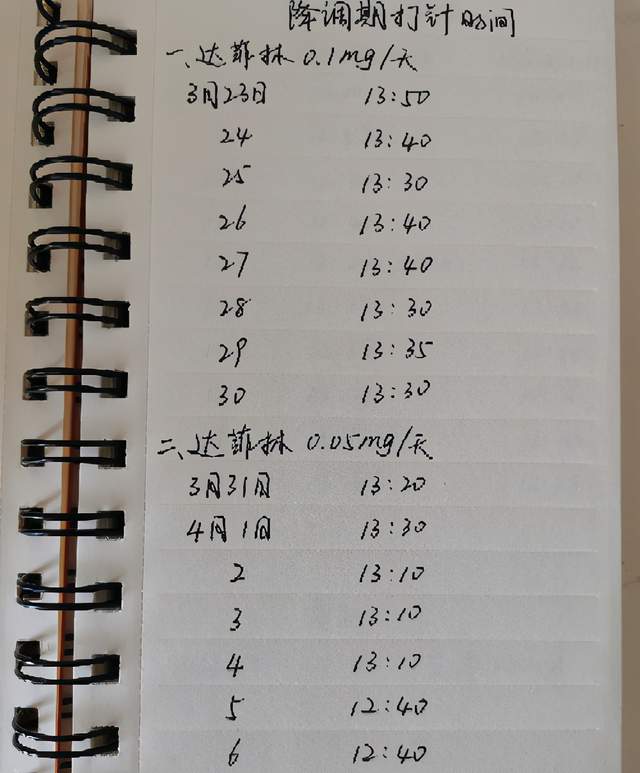 降调期打针时间
一、达菲林 0.1mg/天
3月23日 13:50
24 13:40
25 13:30
26 13:40
27 13:40
28 13:30
29 13:35
30 13:30
二、达菲林 0.05mg/天
3月31日 13:20
4月1日 13:30
2 13:10
3 13:10
4 13:10
5 12:40
6 12:40